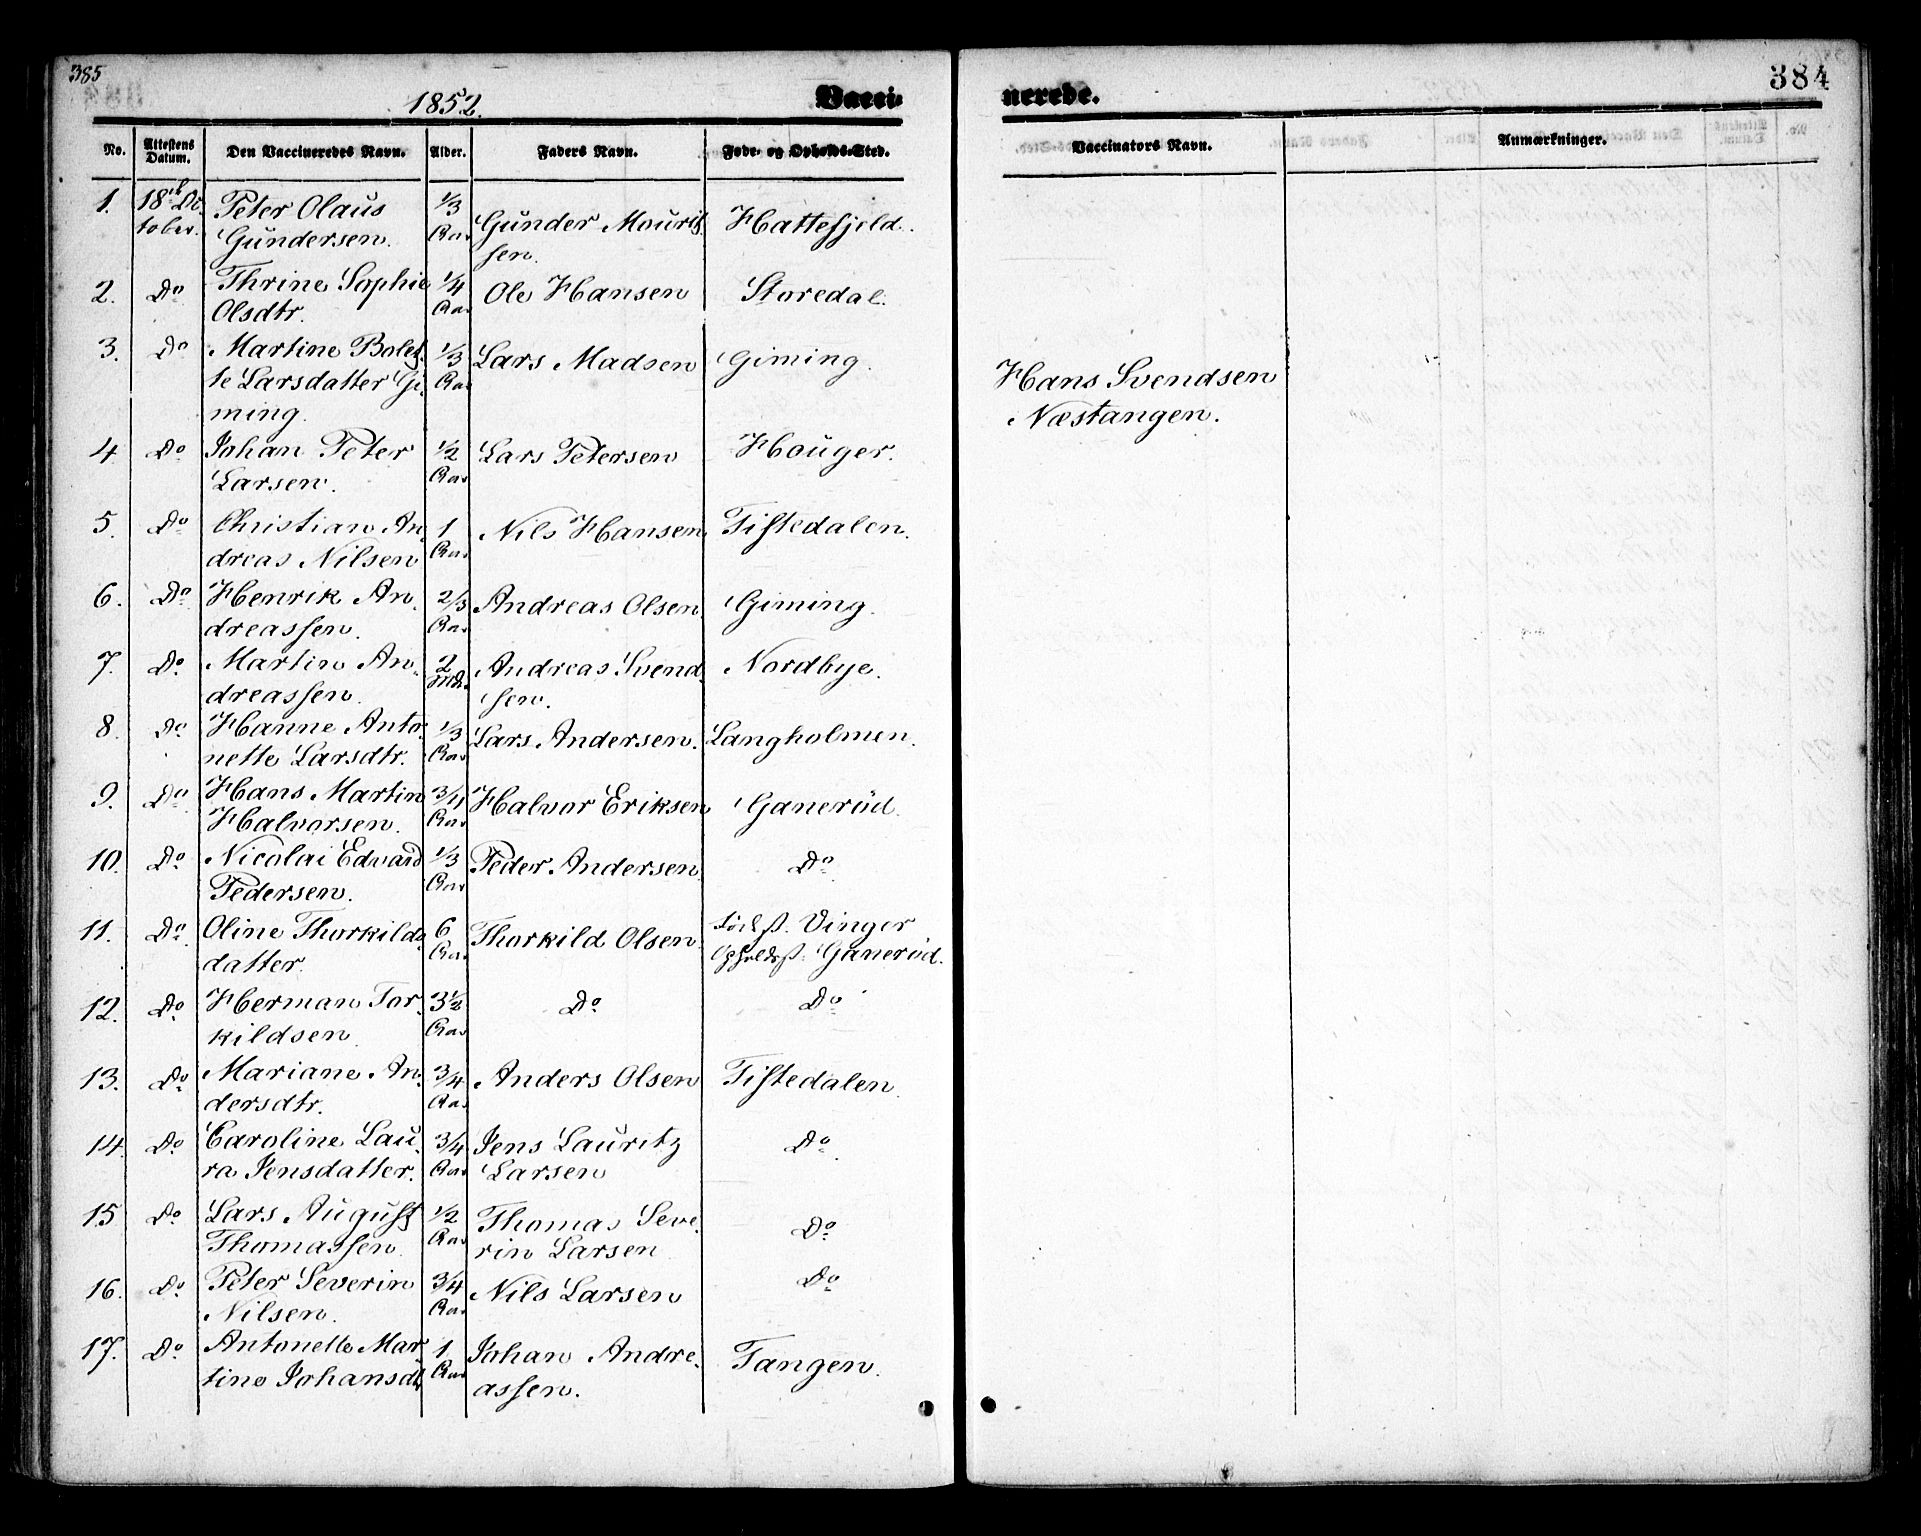 385
1852.
Vacci-
No. Attestens Datum. Den Vaccineredes Navn. Alder. Faders Navn. Føde- og Opholds-Sted.
1. 18de Oc- Peter Olaus 1/3 Gunder Mourit- Hattefjeld.
tober. Gundersen. Aar sen.
2. Do Thrine Sophie 1/4 Ole Hansen Storedal.
Olsdtr. Aar
3. Do Martine Bolet- 1/3 Lars Madsen Giming.
te Larsdatter Gi- Aar
ming.
4. Do Johan Peter 1/2 Lars Petersen Houger.
Larsen. Aar
5. Do Christian An- 1 Nils Hansen Tistedalen.
dreas Nilsen Aar
6. Do Henrik An- 2/3 Andreas Olsen Giming.
dreassen. Aar
7. Do Martin An- 2 Andreas Svend- Nordbye.
dreassen. Md. sen.
8. Do Hanne Anto- 1/3 Lars Andersen. Langholmen.
nette Larsdtr. Aar
9. Do Hans Martin 3/4 Halvor Eriksen Ganerüd.
Halvorsen. Aar
10. Do Nicolai Edvard 1/3 Peder Andersen. Do
Pedersen. Aar
11. Do Oline Thorkilds- 6 Thorkild Olsen. Fødest. Vinger
datter. Aar Opholdsst. Ganerüd.
12. Do Herman Tor- 3 1/2 Do Do
kildsen Aar
13. Do Mariane An- 3/4 Anders Olsen Tistedalen.
dersdtr. Aar
14. Do Caroline Lau- 3/4 Jens Lauritz Do
ra Jensdatter. Aar Larsen
15 Do Lars August 1/2 Thomas Seve- Do
Thomassen. Aar rin Larsen
16. Do Peter Severin 3/4 Nils Larsen Do
Nilsen. Aar
17. Do Antonette Mar- 1 Johan Andre- Tangen.
tine Johansdtr Aar assen.
384
nerede.
Vaccinators Navn. Anmærkninger.
Hans Svendsen
Næstangen.